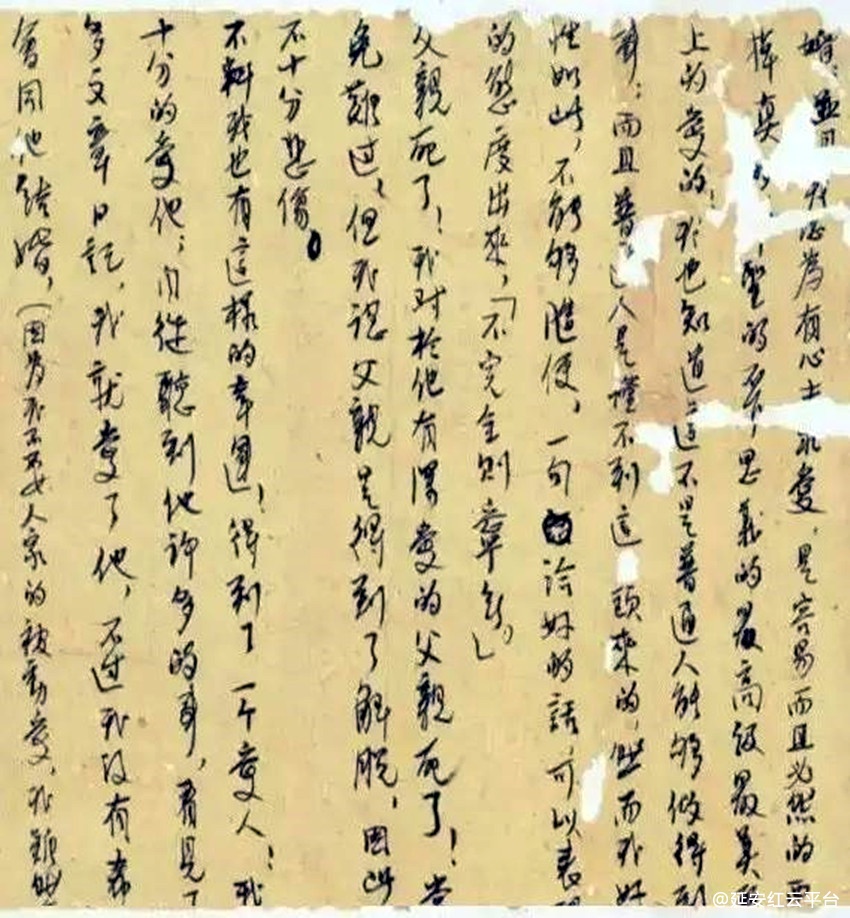 婚；並可 我心為有心士 永愛，是容易而且必然的
摔真 聖的 思義的最高級最真
上的愛的！我也知道這不是普通人能夠做得到
而且普 人是達不到這 頭來的，然而我好
性如此，不能夠隨便，一句 洽好的話 可以表
的態度出來，「不完全則 」
父親死了！我对於他有深愛的父親死了！当
免難过，但我認父親是得到了解脫，因此
不十分悲傷。
不料我也有這樣的幸運！得到了一个愛人！我
十分的愛他；自從聽到他許多的事，看見了
多文章日記，我就愛了他，不过我沒有希
會同他結婚，（因為我 女人家的被動愛，我雖然
@延安红云平台